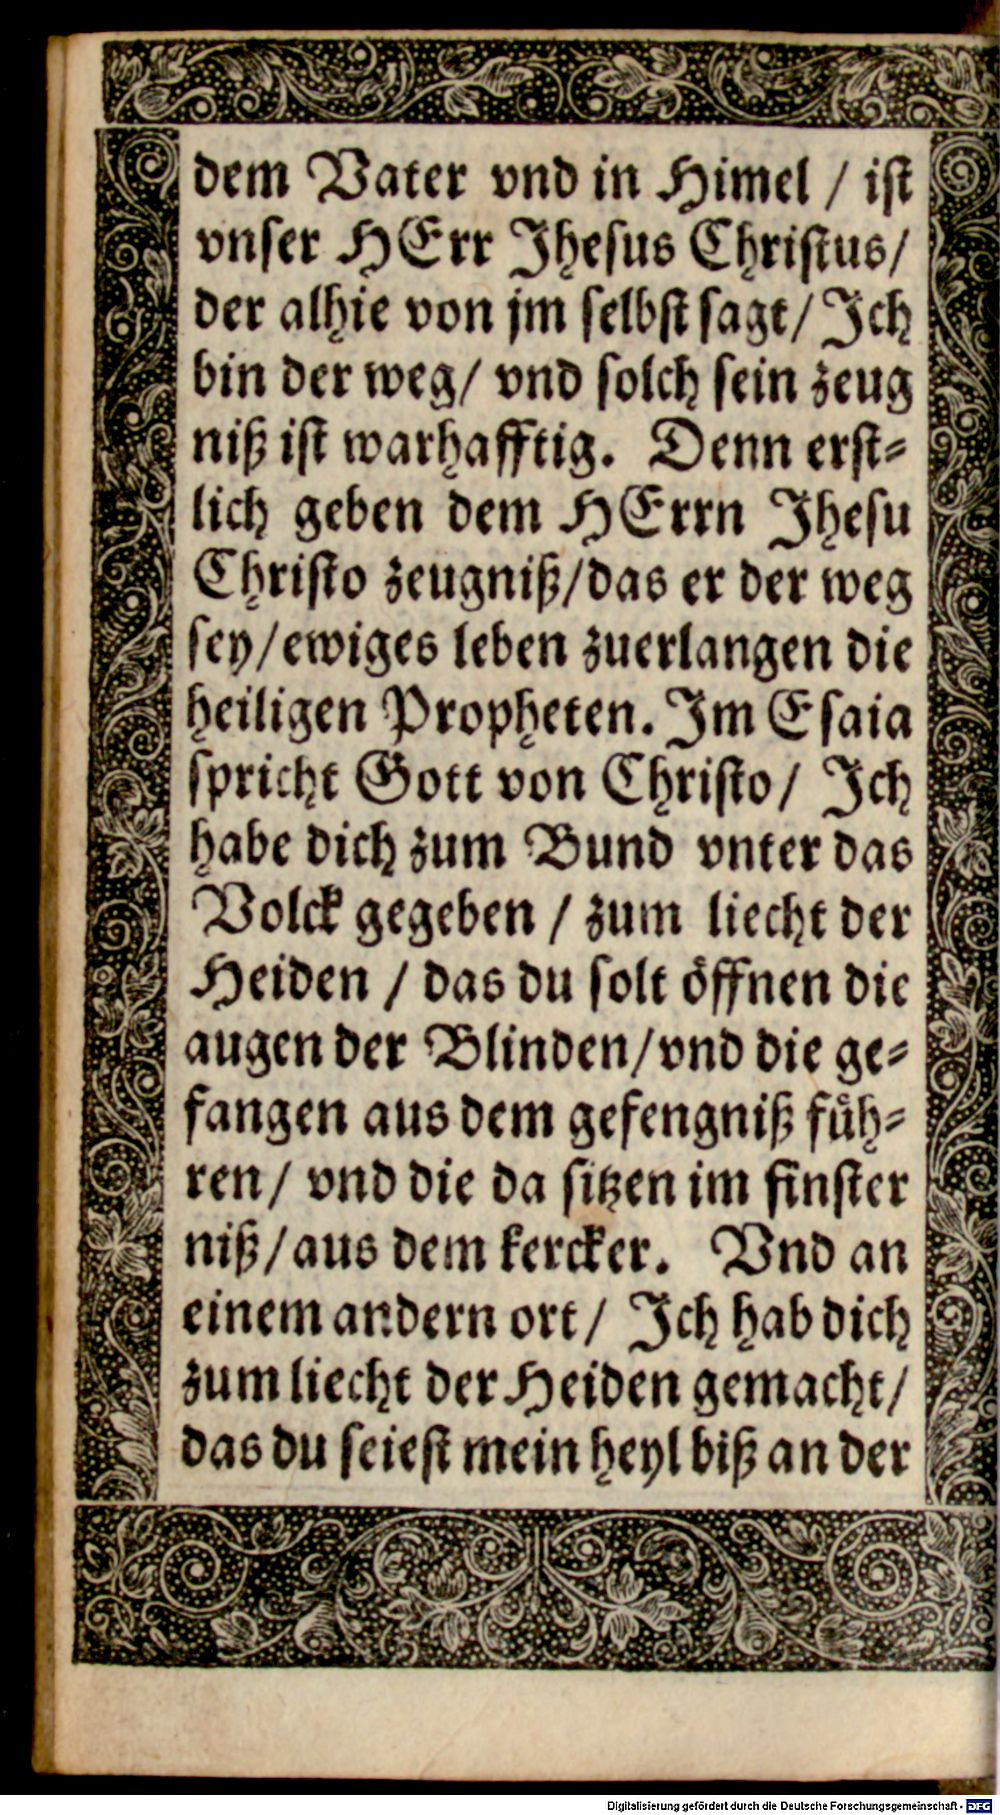 dem Vater vnd in Himel / ist
vnser HErr Jhesus Christus/
der alhie von jm selbst sagt/ Jch
bin der weg/ vnd solch sein zeug
niß ist warhafftig. Denn erst⸗
lich geben dem HErrn Jhesu
Christo zeugniß/das er der weg
sey/ewiges leben zuerlangen die
heiligen Propheten. Jm Esaia
spricht Gott von Christo/ Jch
habe dich zum Bund vnter das
Volck gegeben / zum liecht der
Heiden / das du solt öffnen die
augen der Blinden/vnd die ge⸗
fangen aus dem gefengniß füh⸗
ren/ vnd die da sitzen im finster
niß/aus dem kercker. Vnd an
einem andern ort/ Jch hab dich
zum liecht der Heiden gemacht/
das du seiest mein heyl biß an der
Digitalisierung gefördert durch die Deutsche Forschungsgemeinschaft - DFG